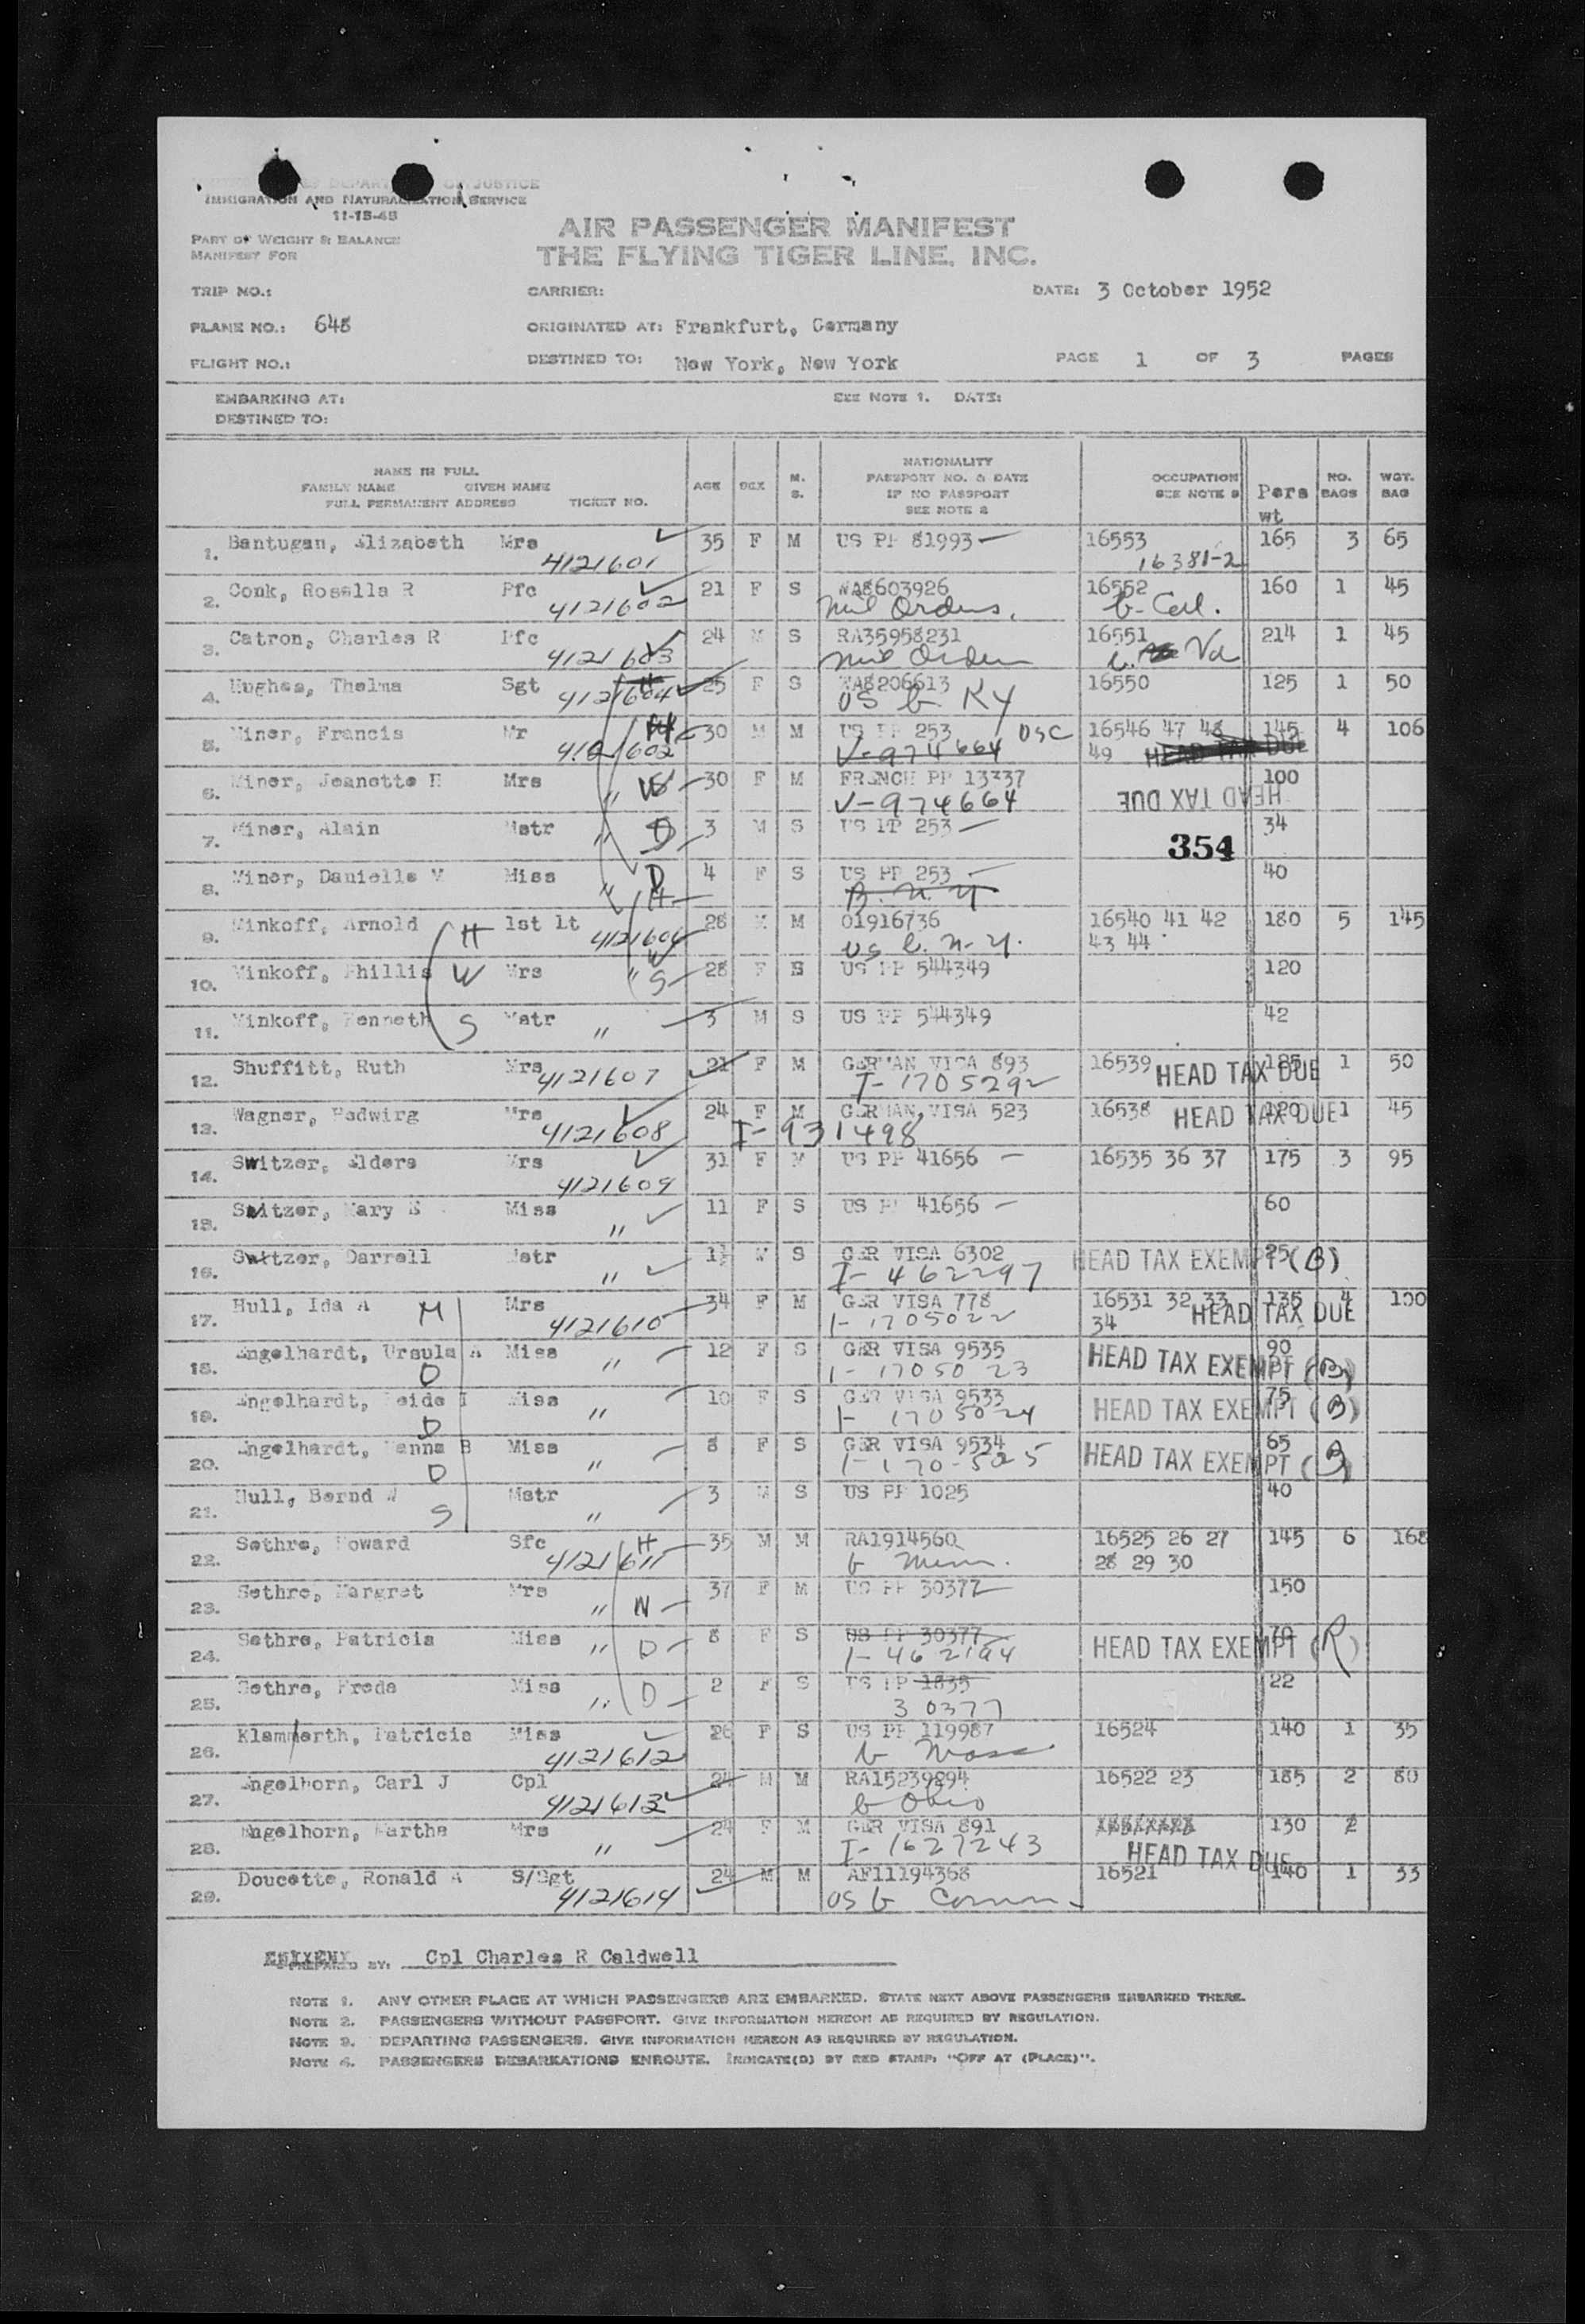 IMMIGRATION AND NATURALIZATION SERVICE
11-15-45
PART OF WEIGHT & BALANCE
MANIFEST FOR
AIR PASSENGER MANIFEST
THE FLYING TIGER LINE, INC.
TRIP NO.: CARRIER: DATE: 3 October 1952
PLANE NO.: 648 ORIGINATED AT: Frankfurt, Germany
FLIGHT NO.: DESTINED TO: New York, New York PAGE 1 OF 3 PAGES
EMBARKING AT: SEE NOTE 1. DATE:
DESTINED TO:
NAME IN FULL
FAMILY NAME GIVEN NAME
FULL PERMANENT ADDRESS TICKET NO.
AGE SEX M. S.
NATIONALITY
PASSPORT NO. & DATE
IF NO PASSPORT
SEE NOTE 2
OCCUPATION
SEE NOTE 3
Pers wt
NO. BAGS
WGT. BAG
1. Bantugan, Elizabeth Mrs 35 F M US PP 81993 16553 165 3 65
4121601 16381-2
2. Conk, Rosella R Pfc 21 F S WA8603926 16552 160 1 45
4121602 mil Orders. b. Cal.
3. Catron, Charles R Pfc 24 M S RA35958231 16551 214 1 45
4121603 mil Orders Va
4. Hughes, Thelma Sgt 25 F S WA8206613 16550 125 1 50
4121604 US b. Ky
5. Miner, Francis Mr 30 M M US PP 253 USC 16546 47 48 145 4 106
V-974664 49 HEAD TAX DUE
6. Miner, Jeanette H Mrs " 30 F M FRENCH PP 13337 100
V-974664 HEAD TAX DUE
7. Miner, Alain Mstr " D 3 M S US PP 253 34
354
8. Miner, Danielle M Miss " D 4 F S US PP 253 40
B. N. Y
9. Minkoff, Arnold H 1st Lt 28 M M 01916736 16540 41 42 180 5 145
US b. N.Y. 43 44
10. Minkoff, Phillis W Mrs " 28 F S US PP 544349 120
11. Minkoff, Kenneth S Mstr " 3 M S US PP 544349 42
12. Shuffitt, Ruth Mrs 21 F M GERMAN VISA 893 16539 185 1 50
4121607 I-1705292 HEAD TAX DUE
13. Wagner, Hedwirg Mrs 24 F M GERMAN VISA 523 16538 120 1 45
4121608 I-931498 HEAD TAX DUE
14. Switzer, Elders Mrs 31 F M US PP 41656 16535 36 37 175 3 95
4121609
15. Switzer, Mary S Miss " 11 F S US PP 41656 60
16. Switzer, Darrell Mstr " 1½ M S GER VISA 6302 25
I-462297 HEAD TAX EXEMPT (B)
17. Hull, Ida A M Mrs 34 F M GER VISA 778 16531 32 33 135 4 100
4121610 I-1705022 34 HEAD TAX DUE
18. Engelhardt, Ursula A D Miss " 12 F S GER VISA 9535 90
I-1705023 HEAD TAX EXEMPT (B)
19. Engelhardt, Heide I D Miss " 10 F S GER VISA 9533 75
I-1705024 HEAD TAX EXEMPT (B)
20. Engelhardt, Hanna B D Miss " 8 F S GER VISA 9534 65
I-170-5025 HEAD TAX EXEMPT (B)
21. Hull, Bernd W S Mstr " 3 M S US PP 1025 40
22. Sethre, Howard Sfc H 35 M M RA1914560 16525 26 27 145 6 168
4121611 b Minn. 28 29 30
23. Sethre, Margret Mrs " W 37 F M US PP 30377 150
24. Sethre, Patricia Miss " D 8 F S US PP 30377 70
I-462194 HEAD TAX EXEMPT (R)
25. Sethre, Freda Miss " D 2 F S US PP 1835 22
30377
26. Klammerth, Patricia Miss 26 F S US PP 119987 16524 140 1 35
4121612 b Mass
27. Engelhorn, Carl J Cpl 24 M M RA15239894 16522 23 185 2 80
4121613 b Ohio
28. Engelhorn, Martha Mrs " 24 F M GER VISA 891 130 2
I-1627243 HEAD TAX DUE
29. Doucette, Ronald A S/Sgt 24 M M AF11194368 16521 140 1 33
4121614 US b Conn.
PREPARED BY: Cpl Charles R Caldwell
NOTE 1. ANY OTHER PLACE AT WHICH PASSENGERS ARE EMBARKED. STATE NEXT ABOVE PASSENGERS EMBARKED THERE.
NOTE 2. PASSENGERS WITHOUT PASSPORT. GIVE INFORMATION HEREON AS REQUIRED BY REGULATION.
NOTE 3. DEPARTING PASSENGERS. GIVE INFORMATION HEREON AS REQUIRED BY REGULATION.
NOTE 4. PASSENGERS DEBARKATIONS ENROUTE. INDICATE(D) BY RED STAMP: "OFF AT (PLACE)".